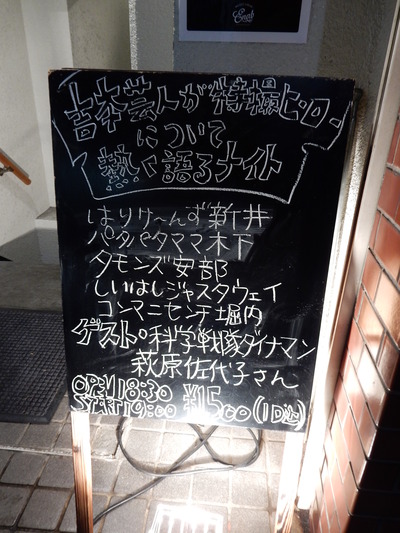 吉本芸人が特撮ヒーロー
について
熱く語るナイト
はりけ〜んず新井
パタパタママ木下
タモンズ安部
しいはしジャスタウェイ
コンマニセンチ堀内
ゲスト・科学戦隊ダイナマン
萩原佐代子さん
OPEN18:30
START19:00 ¥1500(1D込)